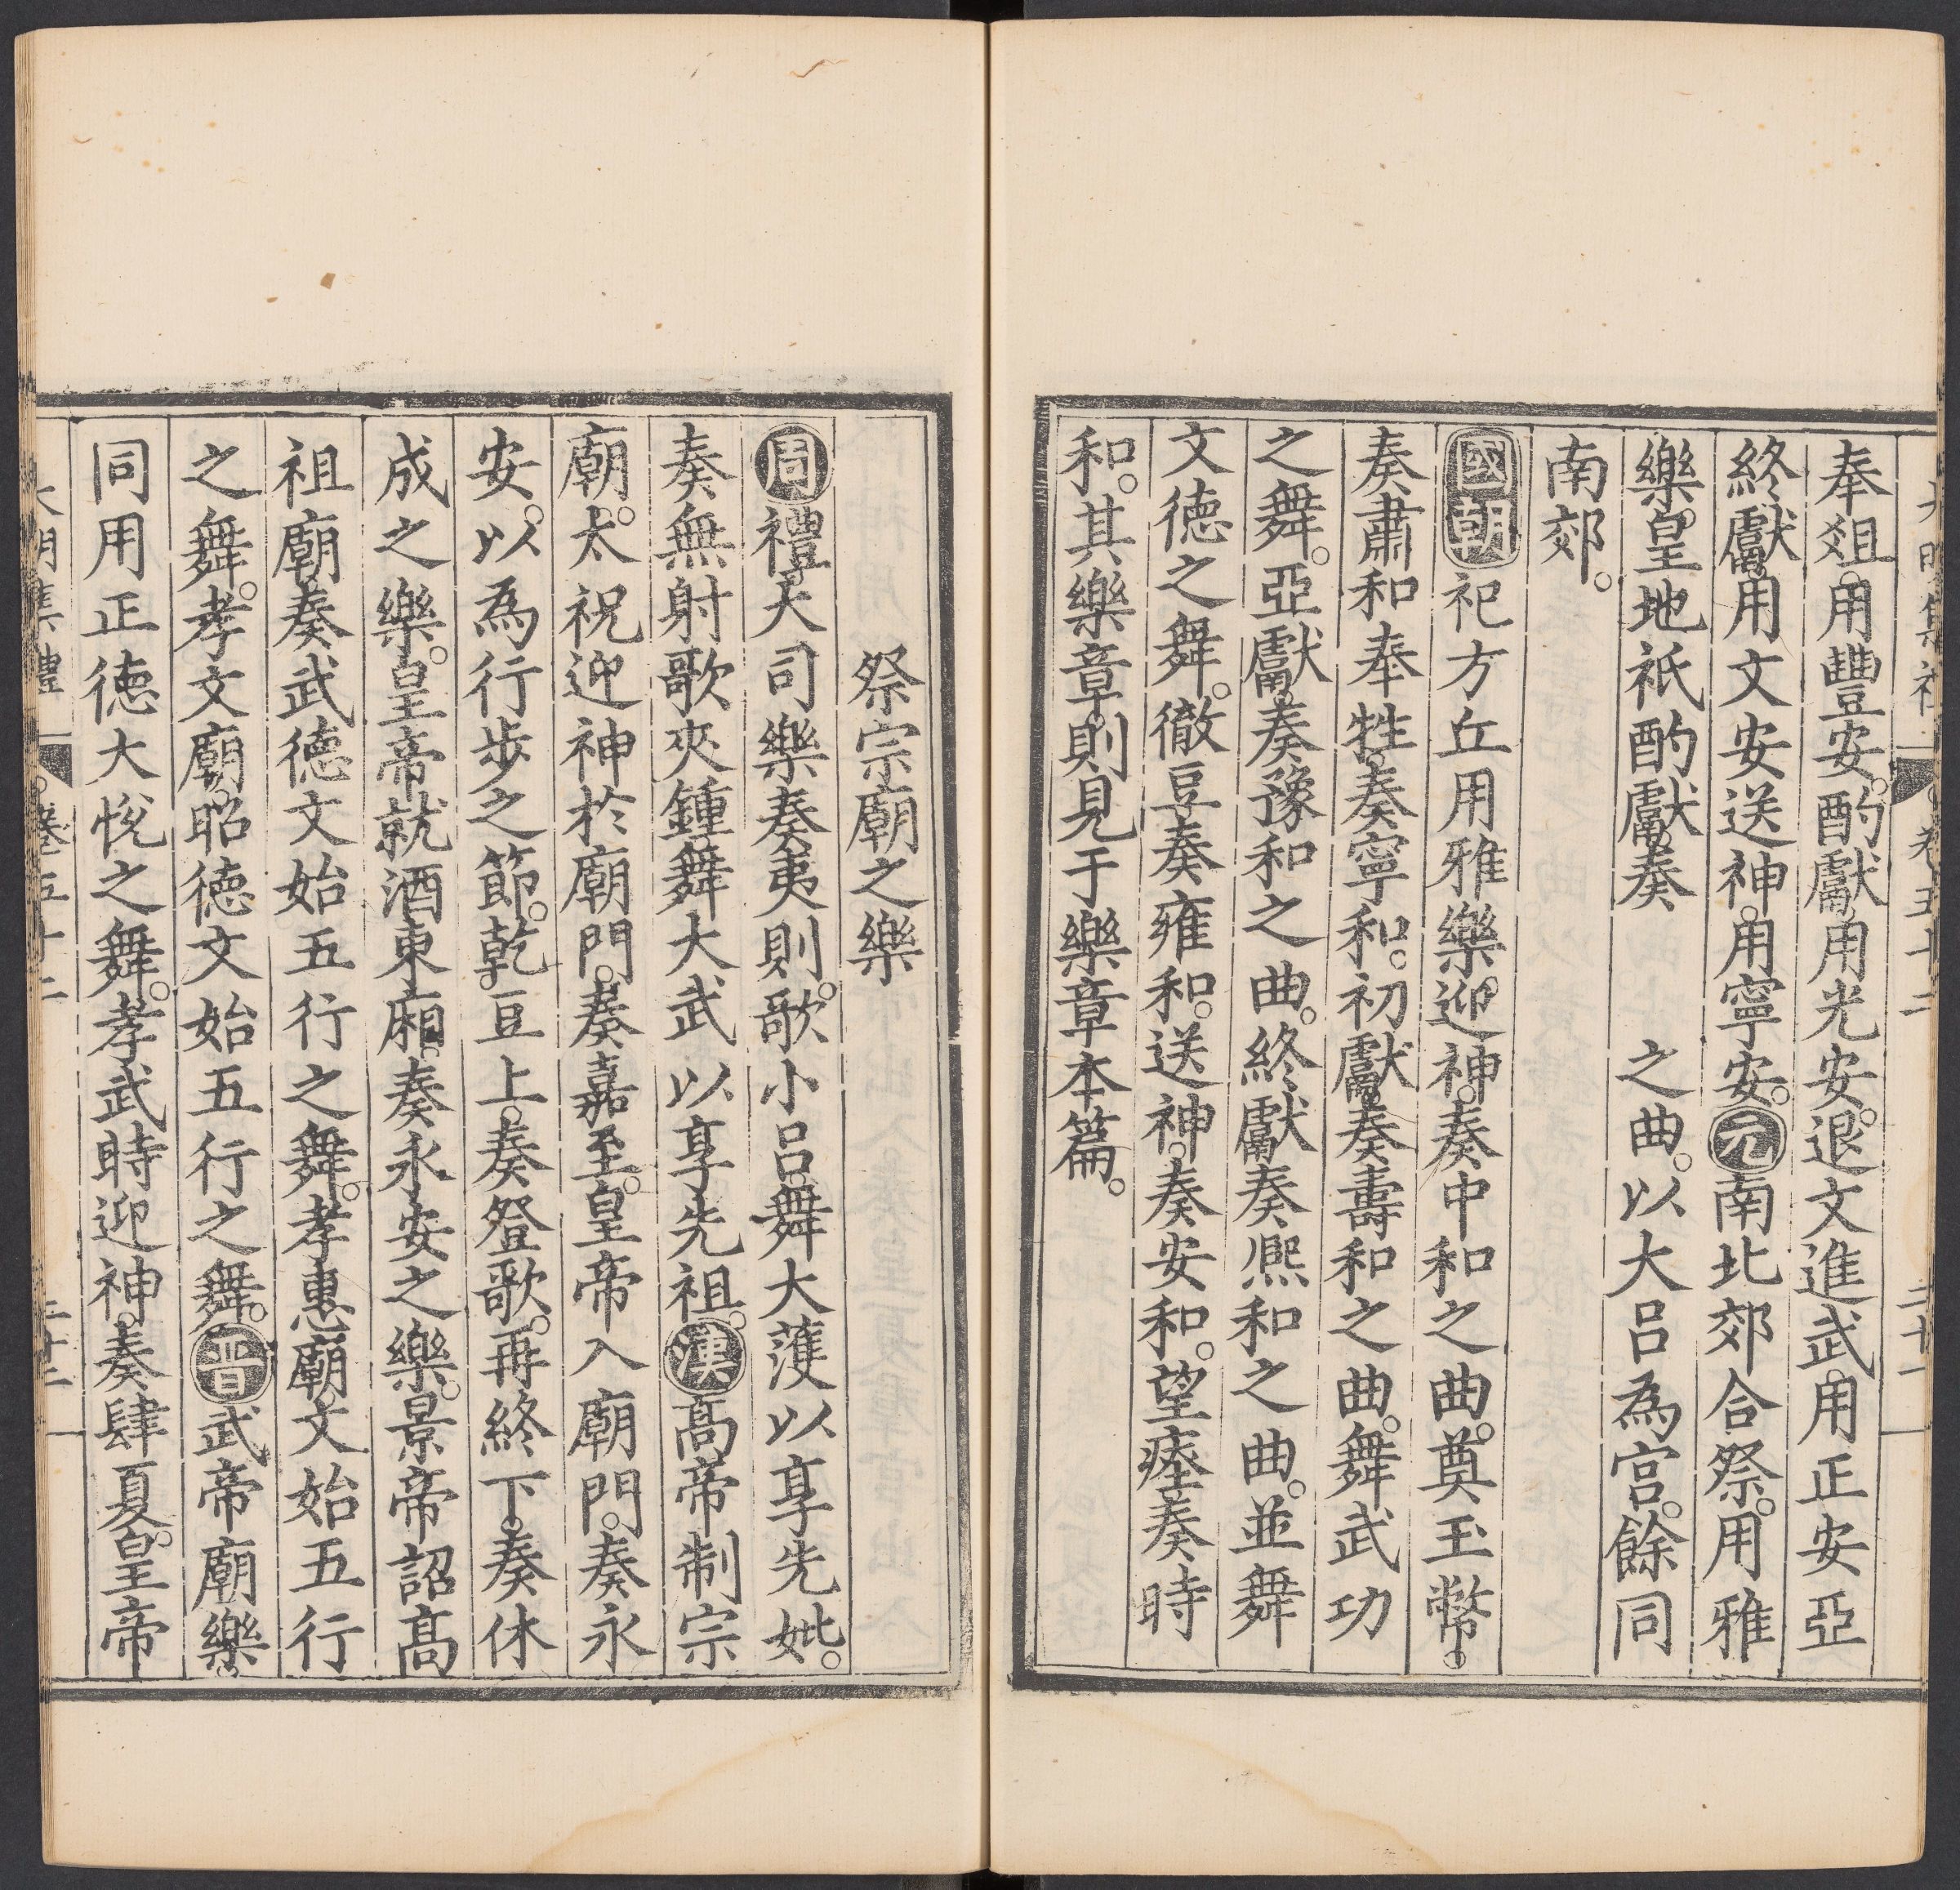 奉俎。用豐安。酌獻。用光安。退文進武。用正安亞
終獻。用文安送神。用寧安。元南北郊合祭。用雅
樂。皇地祇酌獻。奏　　之曲。以大呂為宮。餘同
南郊。
國朝祀方丘用雅樂。迎神。奏中和之曲。奠玉幣。
奏肅和奉牲。奏寧和。初獻。奏壽和之曲。舞武功
之舞。亞獻。奏豫和之曲。終獻奏熈和之曲。並舞
文德之舞。徹豆奏雍和。送神。奏安和。望瘞奏時
和。其樂章。則見于樂章本篇。
祭宗廟之樂
周禮。大司樂奏夷則。歌小呂。舞大濩以享先妣。
奏無射歌夾鍾舞大武以享先祖。漢髙帝制宗
廟。太祝迎神於廟門。奏嘉至。皇帝入廟門。奏永
安。以為行步之節。乾豆上。奏登歌。再終下。奏休
成之樂。皇帝就酒東廂。奏永安之樂。景帝詔髙
祖廟。奏武德文始五行之舞。孝惠廟。文始五行
之舞。孝文廟。昭德文始五行之舞。晋武帝廟樂。
同用正德大悅之舞。孝武時迎神。奏肆夏。皇帝
大明集禮　卷五十二　三十二